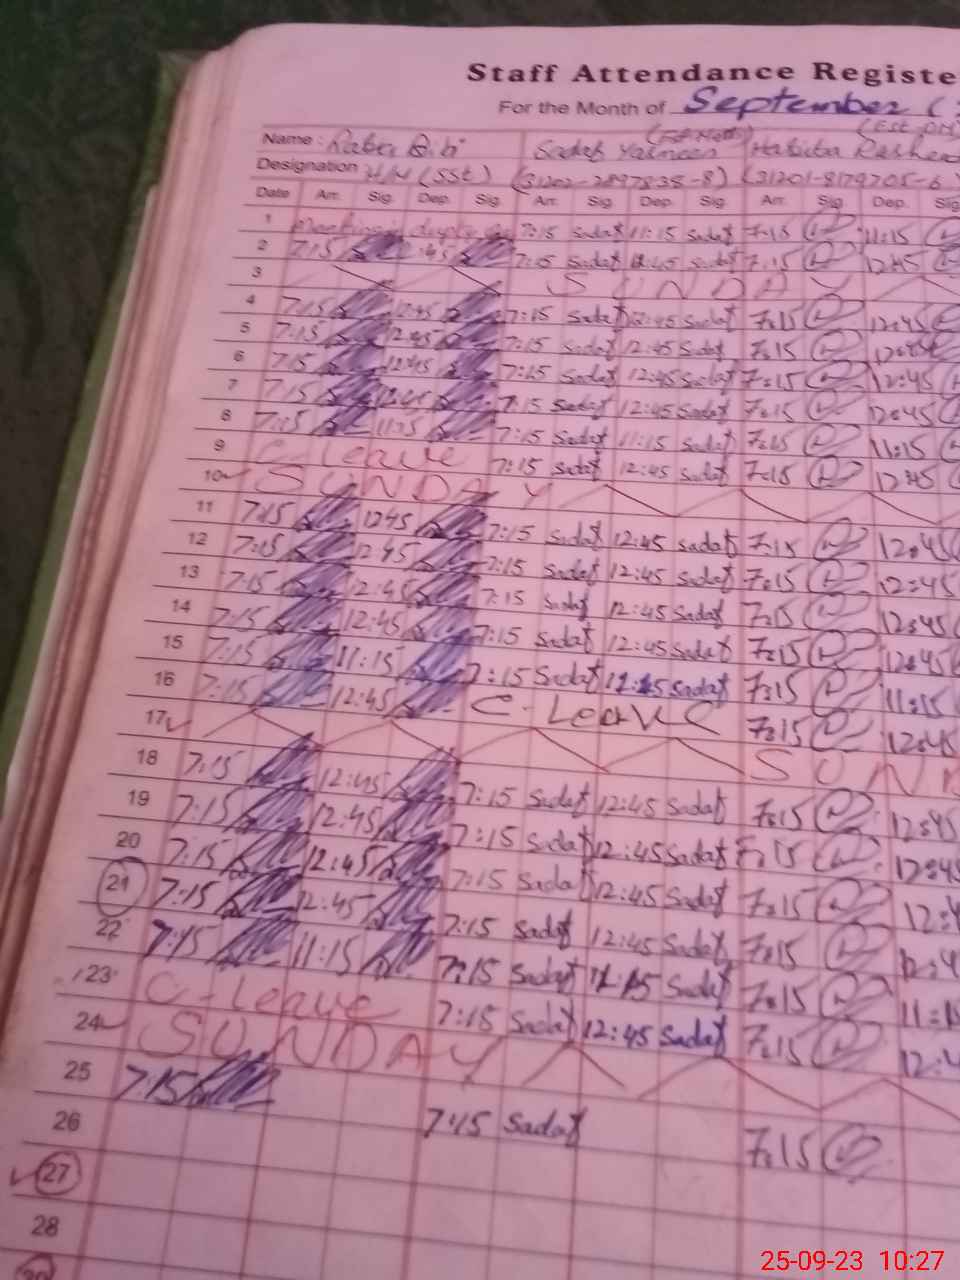 Staff Attendance Registe
For the Month of September (
Name : Rabia Bibi Sadaf Yasmeen Habiba Rashee
Designation H/M (SST) (31202-2897838-8) (31201-8179705-6
Date Arr. Sig. Dep. Sig. Arr. Sig. Dep. Sig. Arr. Sig. Dep. Sig
1 Meeting 7:15 sadaf 11:15 sadaf 7:15 11:15
2 7:15 12:45 7:15 sadaf 12:45 sadaf 7:15 12:45
3 SUNDAY
4 7:15 12:45 7:15 sadaf 12:45 sadaf 7:15 12:45
5 7:15 12:45 7:15 sadaf 12:45 sadaf 7:15 12:45
6 7:15 12:45 7:15 sadaf 12:45 sadaf 7:15 12:45
7 7:15 12:45 7:15 sadaf 12:45 sadaf 7:15 12:45
8 7:15 11:15 7:15 sadaf 11:15 sadaf 7:15 11:15
9 C-leave 7:15 sadaf 12:45 sadaf 7:15 12:45
10 SUNDAY
11 7:15 1245 7:15 sadaf 12:45 sadaf 7:15 12:45
12 7:15 12:45 7:15 sadaf 12:45 sadaf 7:15 12:45
13 7:15 12:45 7:15 sadaf 12:45 sadaf 7:15 12:45
14 7:15 12:45 7:15 sadaf 12:45 sadaf 7:15 12:45
15 7:15 11:15 7:15 Sadaf 11:15 sadaf 7:15 11:15
16 7:15 12:45 C-Leave 7:15 12:45
17 SUN
18 7:15 12:45 7:15 Sadaf 12:45 Sadaf 7:15 12:45
19 7:15 12:45 7:15 Sadaf 12:45 Sadaf 7:15 12:45
20 7:15 12:45 7:15 Sadaf 12:45 Sadaf 7:15 12:
21 7:15 12:45 7:15 Sadaf 12:45 Sadaf 7:15 12:4
22 7:15 11:15 7:15 Sadaf 11:15 Sadaf 7:15 11:1
23 C-Leave 7:15 Sadaf 12:45 Sadaf 7:15 12:4
24 SUNDAY
25 7:15 7:15 Sadaf 7:15
26
27
28
25-09-23 10:27